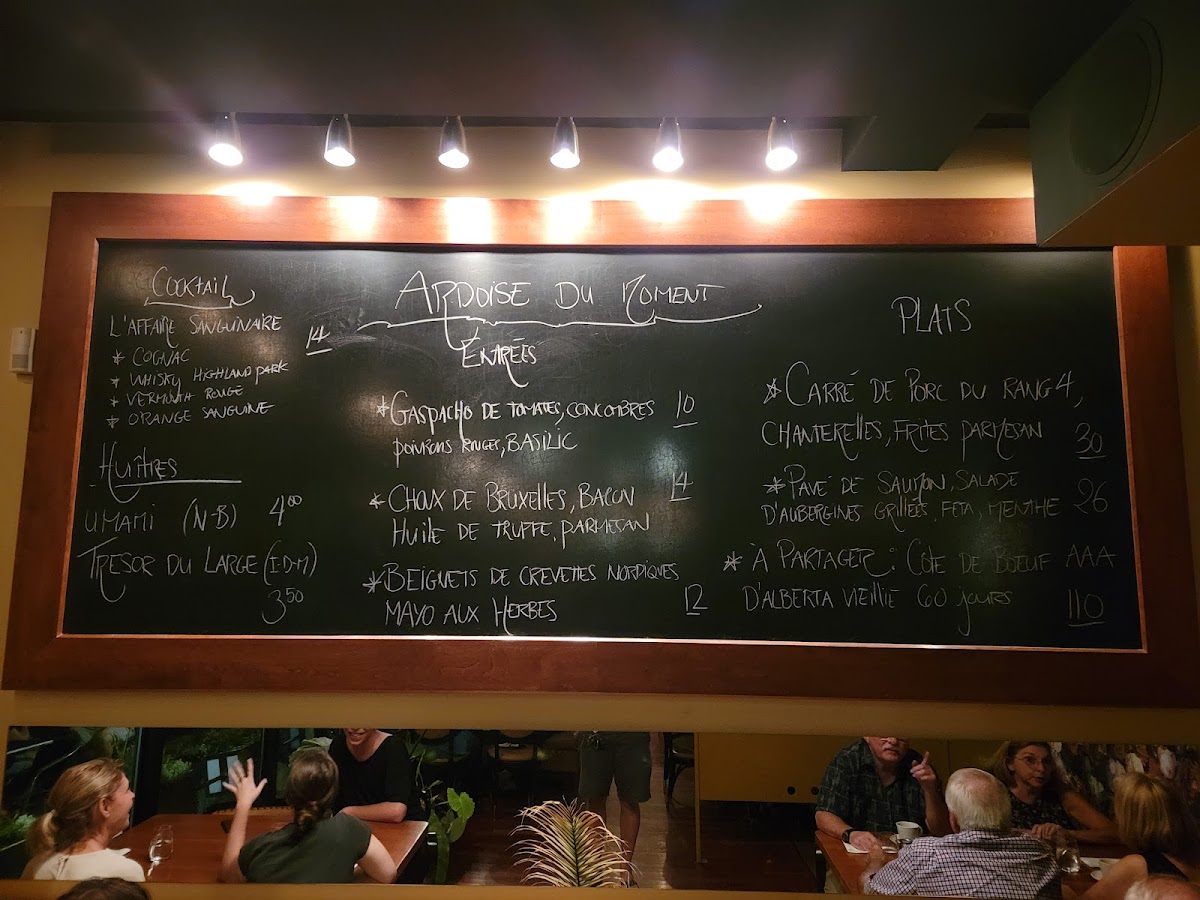 COCKTAIL
L'AFFAIRE SANGUINAIRE 14
* COGNAC
* WHISKY HIGHLAND PARK
* VERMOUTH ROUGE
* ORANGE SANGUINE
HUÎTRES
UMAMI (N-B) 4.00
TRESOR DU LARGE (I-D-M)
3.50
ARDOISE DU MOMENT
ENTRÉES
* GASPACHO DE TOMATES, CONCOMBRES 10
POIVRONS ROUGES, BASILIC
* CHOUX DE BRUXELLES, BACON 14
HUILE DE TRUFFE, PARMESAN
* BEIGNETS DE CREVETTES NORDIQUES
MAYO AUX HERBES 12
PLATS
* CARRÉ DE PORC DU RANG 4,
CHANTERELLES, FRITES PARMESAN 30
* PAVÉ DE SAUMON, SALADE
D'AUBERGINES GRILLÉES, FETA, MENTHE 26
* À PARTAGER : CÔTE DE BOEUF AAA
D'ALBERTA VIEILLIE 60 JOURS 110